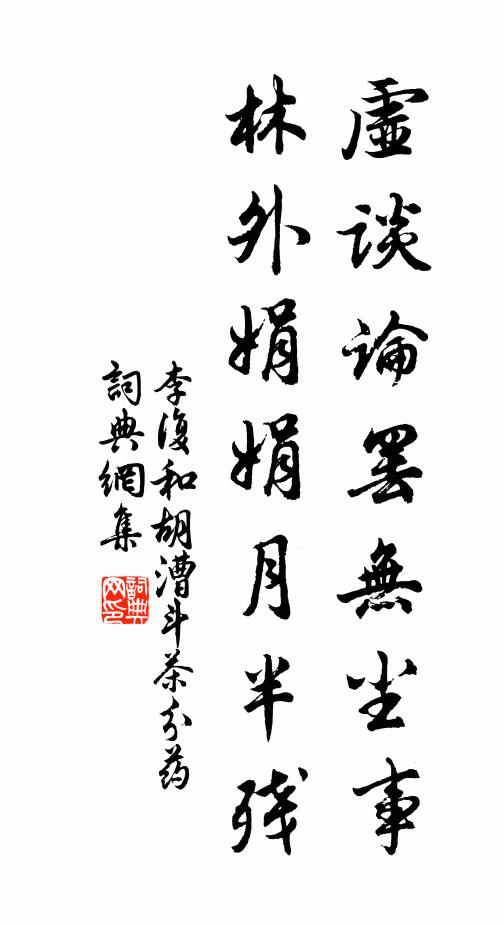 虛談論罷無尘事
林外娟娟月半残
李復和胡漕斗茶分药
詞典網集
詞典
网印